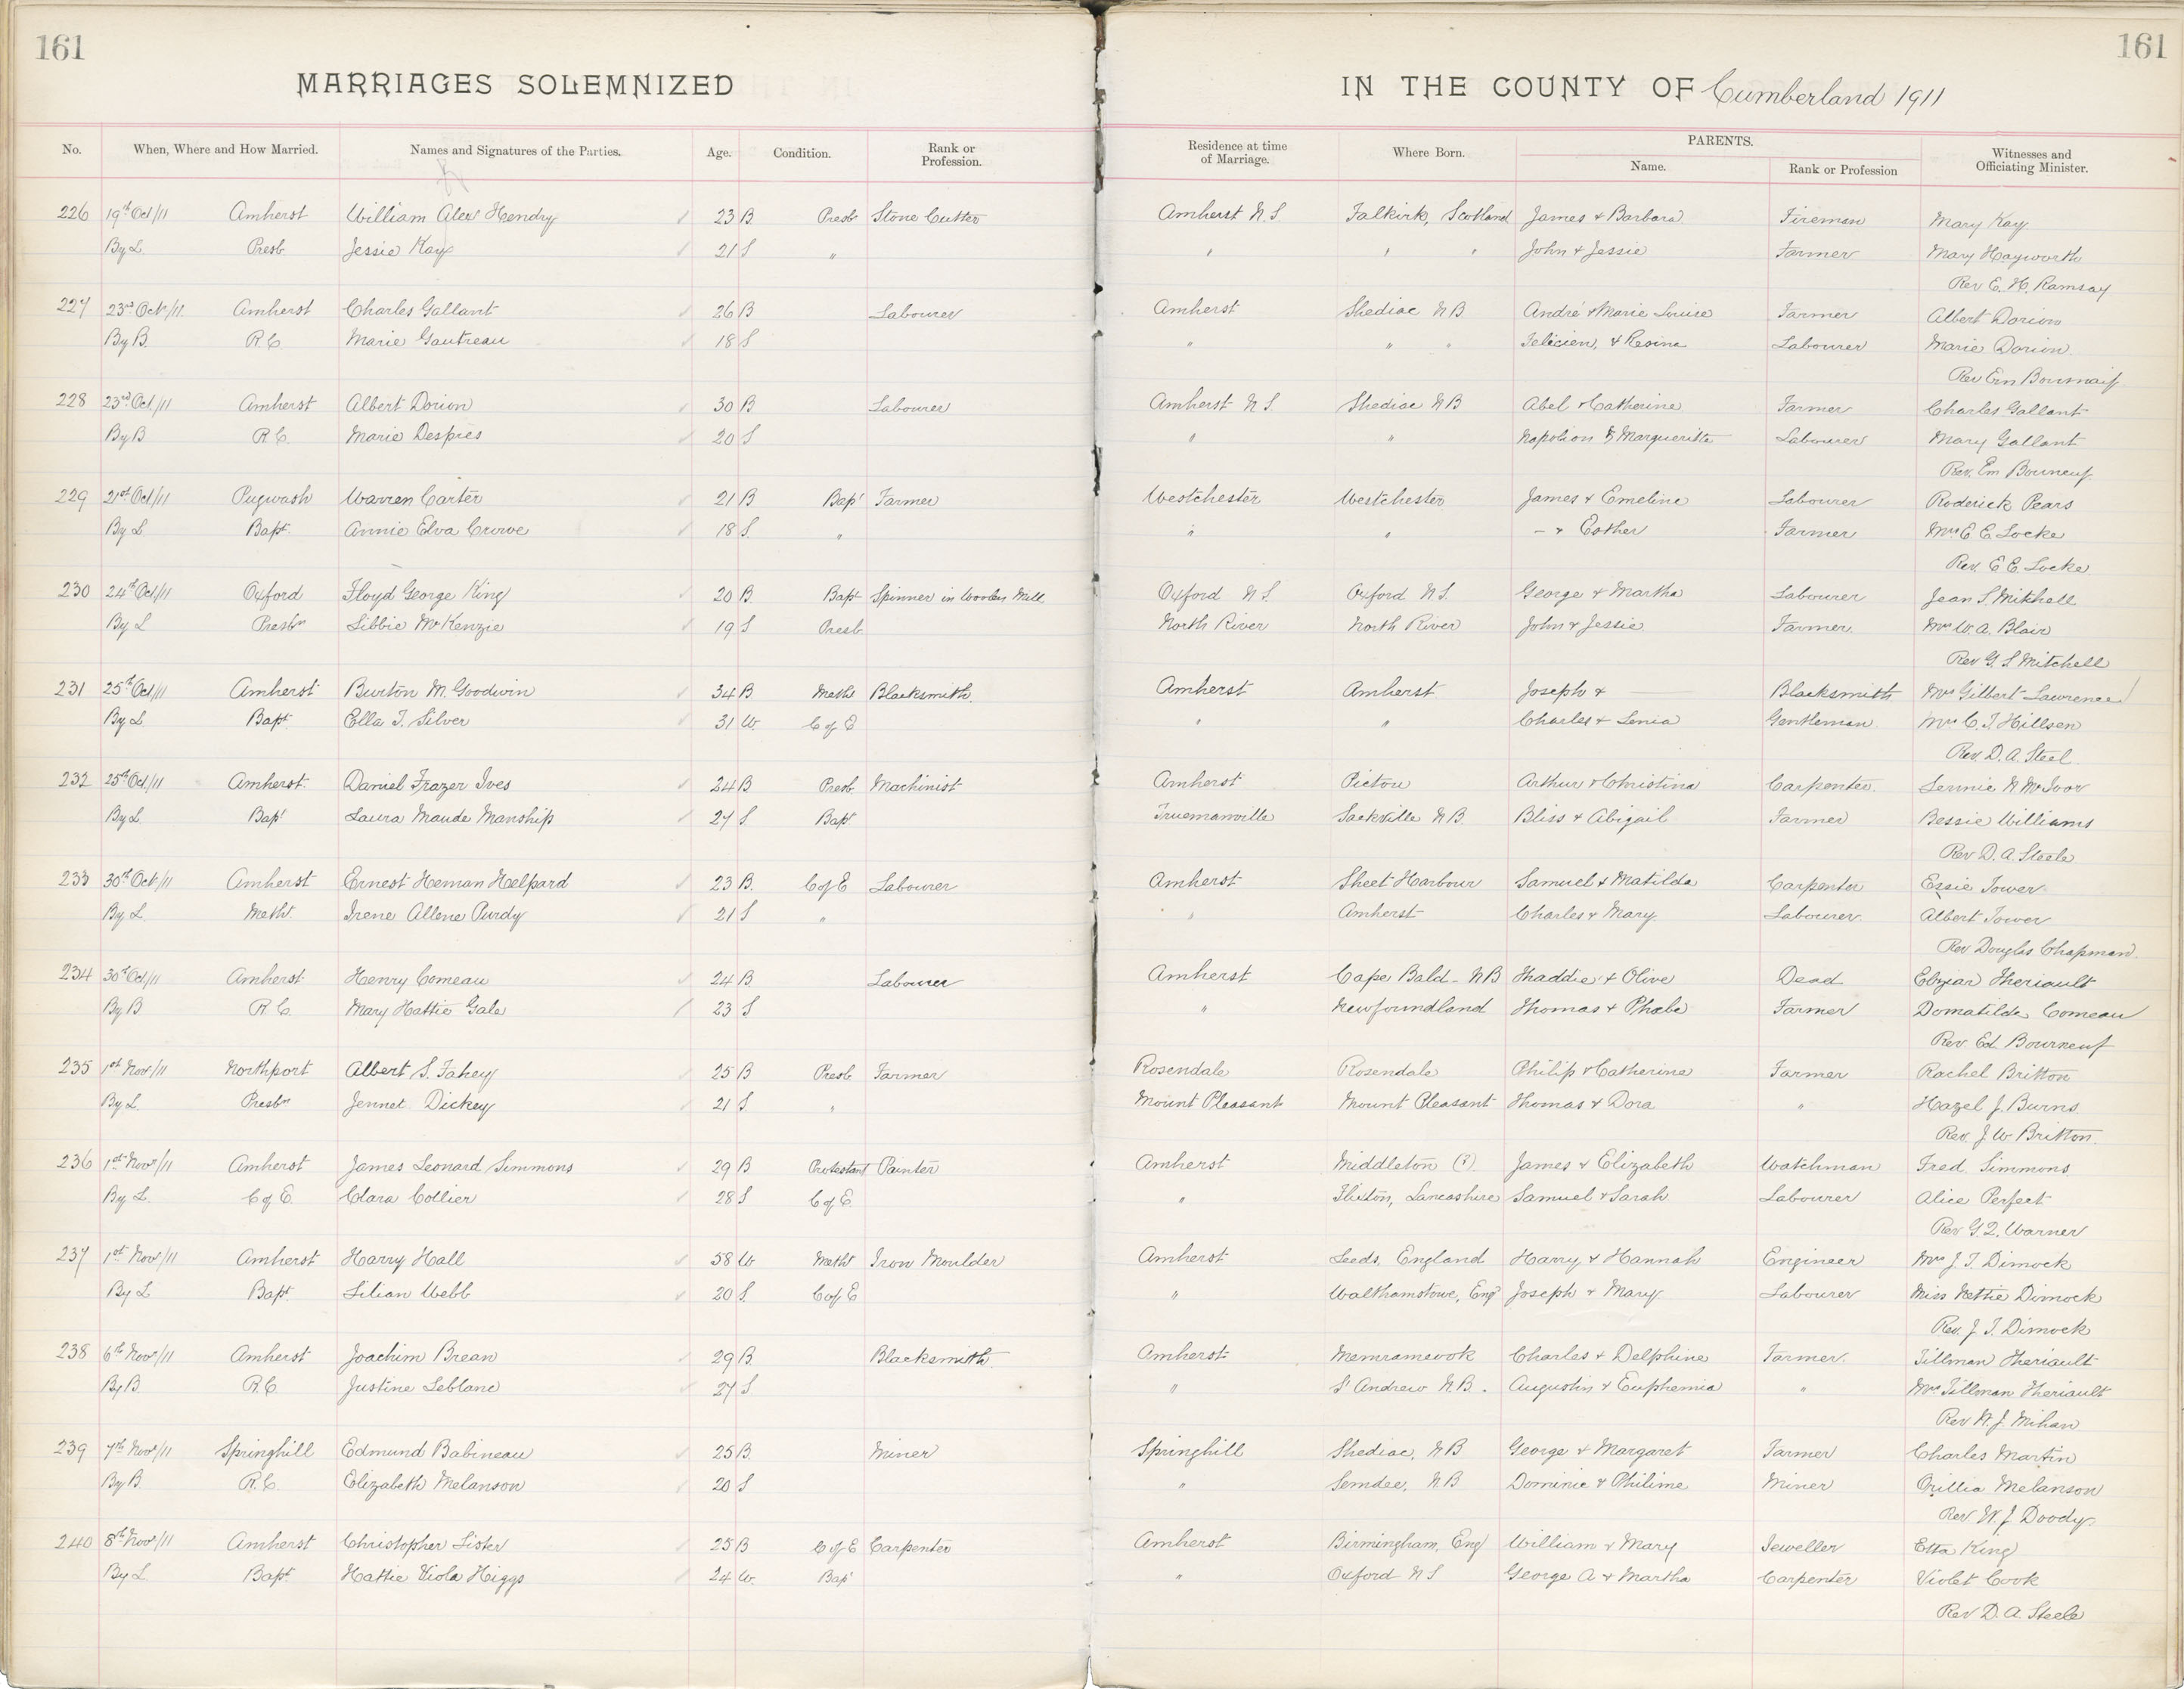 161
161
MARRIAGES SOLEMNIZED
IN THE COUNTY OF Cumberland 1911
No. When, Where and How Married. Names and Signatures of the Parties. Age. Condition. Rank or Profession. Residence at time of Marriage. Where Born. PARENTS. Name. Rank or Profession Witnesses and Officiating Minister.
226 19th Oct/11 Amherst William Alex Hendry 23 B Presb Stone Cutter Amherst N.S. Falkirk, Scotland James & Barbara Fireman Mary Kay
By L. Presb. Jessie Kay 21 S " " " " John & Jessie Farmer Mary Hayworth
Rev E. H. Ramsay
227 23rd Oct/11 Amherst Charles Gallant 26 B Labourer Amherst Shediac N B André & Marie Louise Farmer Albert Dorion
By B. R.C. Marie Gautreau 18 S " " " Felicien, & Resina Labourer Marie Dorion
Rev Em
228 23rd Oct./11 Amherst Albert Dorion 30 B Labourer Amherst N.S. Shediac N B Abel & Catherine Farmer Charles Gallant
By B R.C. Marie Despres 20 S " " Napolion & Marguerite Labourer Mary Gallant
Rev. Em Bourneuf
229 21st Oct/11 Pugwash Warren Carter 21 B Bapt Farmer Westchester Westchester James & Emeline Labourer Roderick Pears
By L Bapt. Annie Elva Crowe 18 S. " " " - & Esther Farmer Mrs E. E. Locke
Rev. E E. Locke
230 24th Oct/11 Oxford Floyd George King 20 B. Bapt Spinner in Woolen Mill Oxford N.S. Oxford N.S. George & Martha Labourer Jean S. Mitchell
By L Presbn Libbie McKenzie 19 S Presb. North River North River John & Jessie Farmer. Mrs W. A. Blair
Rev G. S Mitchell
231 25th Oct/11 Amherst Burton M. Goodwin 34 B Meth. Blacksmith. Amherst Amherst Joseph & — Blacksmith Mrs Gilbert Lawrence
By L Bapt. Ella T. Silver 31 W. C of E " " Charles & Lenia Gentleman Mrs C. T. Hillsen
Rev. D. A. Steel
232 25th Oct./11 Amherst. Daniel Frazer Ives 24 B Presb. Machinist Amherst Pictou Arthur & Christina Carpenter.
By L. Bapt Laura Maude Manship 27 S. Bapt Truemanville Sackville N B. Bliss & Abigail Farmer Bessie Williams
Rev D. A. Steele
233 30th Oct/11 Amherst Ernest Heman Helpard 23 B. C of E Labourer Amherst Sheet Harbour Samuel & Matilda Carpenter Essie Tower
By L. Meth. Irene Allene Purdy 21 S " " Amherst Charles & Mary Labourer. Albert Tower
Rev Douglas Chapman
234 30th Oct/11 Amherst Henry Comeau 24 B Labourer Amherst Cape Bald - N B Thaddie & Olive Dead Theriault
By B R.C. Mary Hattie Gale 23 S " Newfoundland Thomas & Phoebe Farmer Domatilde Comeau
Rev Ed. Bourneuf
235 1st Nov/11 Northport Albert S. Fahey 25 B Presb Farmer Rosendale Rosendale Philip & Catherine Farmer Rachel Britton
By L. Presbn Jennet Dickey 21 S " Mount Pleasant Mount Pleasant Thomas & Dora " Hazel J. Burns
Rev. J. W Britton.
236 1st Nov/11 Amherst James Leonard Simmons 29 B Protestant Painter Amherst Middleton (?) James & Elizabeth Watchman Fred. Simmons
By L. C of E. Clara Collier 28 S C of E. " Lancashire Samuel & Sarah Labourer Alice Perfect
Rev G. Q. Warner
237 1st Nov/11 Amherst Harry Hall 58 W Meth Iron Moulder Amherst Leeds, England Harry & Hannah Engineer Mrs J. T. Dimock
By L Bapt. Lilian Webb 20 S. C of E " Walthamstowe, Engd Joseph & Mary Labourer Miss Nettie Dimock
Rev. J. T. Dimock
238 6th Nov/11 Amherst Joachim Brean 29 B. Blacksmith. Amherst Memramcook Charles & Delphine Farmer. Tillman Theriault
By B. R.C. Justine Leblanc 27 S " St Andrew N.B. Augustin & Euphemia " Mrs Tillman Theriault
Rev W. J. Mihan
239 7th Nov/11 Springhill Edmund Babineau 25 B. Miner Springhill Shediac, N B George & Margaret Farmer Charles Martin
By B. R.C. Elizabeth Melanson 20 S " N.B Dominic & Philime Miner Orillia Melanson
Rev W. J Doody.
240 8th Nov/11 Amherst Christopher Lister 25 B C of E Carpenter Amherst Birmingham, Eng William & Mary Jeweller Etta King
By L. Bapt. Hattie Viola Higgs 24 W. Bapt " Oxford N S George A & Martha Carpenter Violet Cook
Rev D. A. Steele